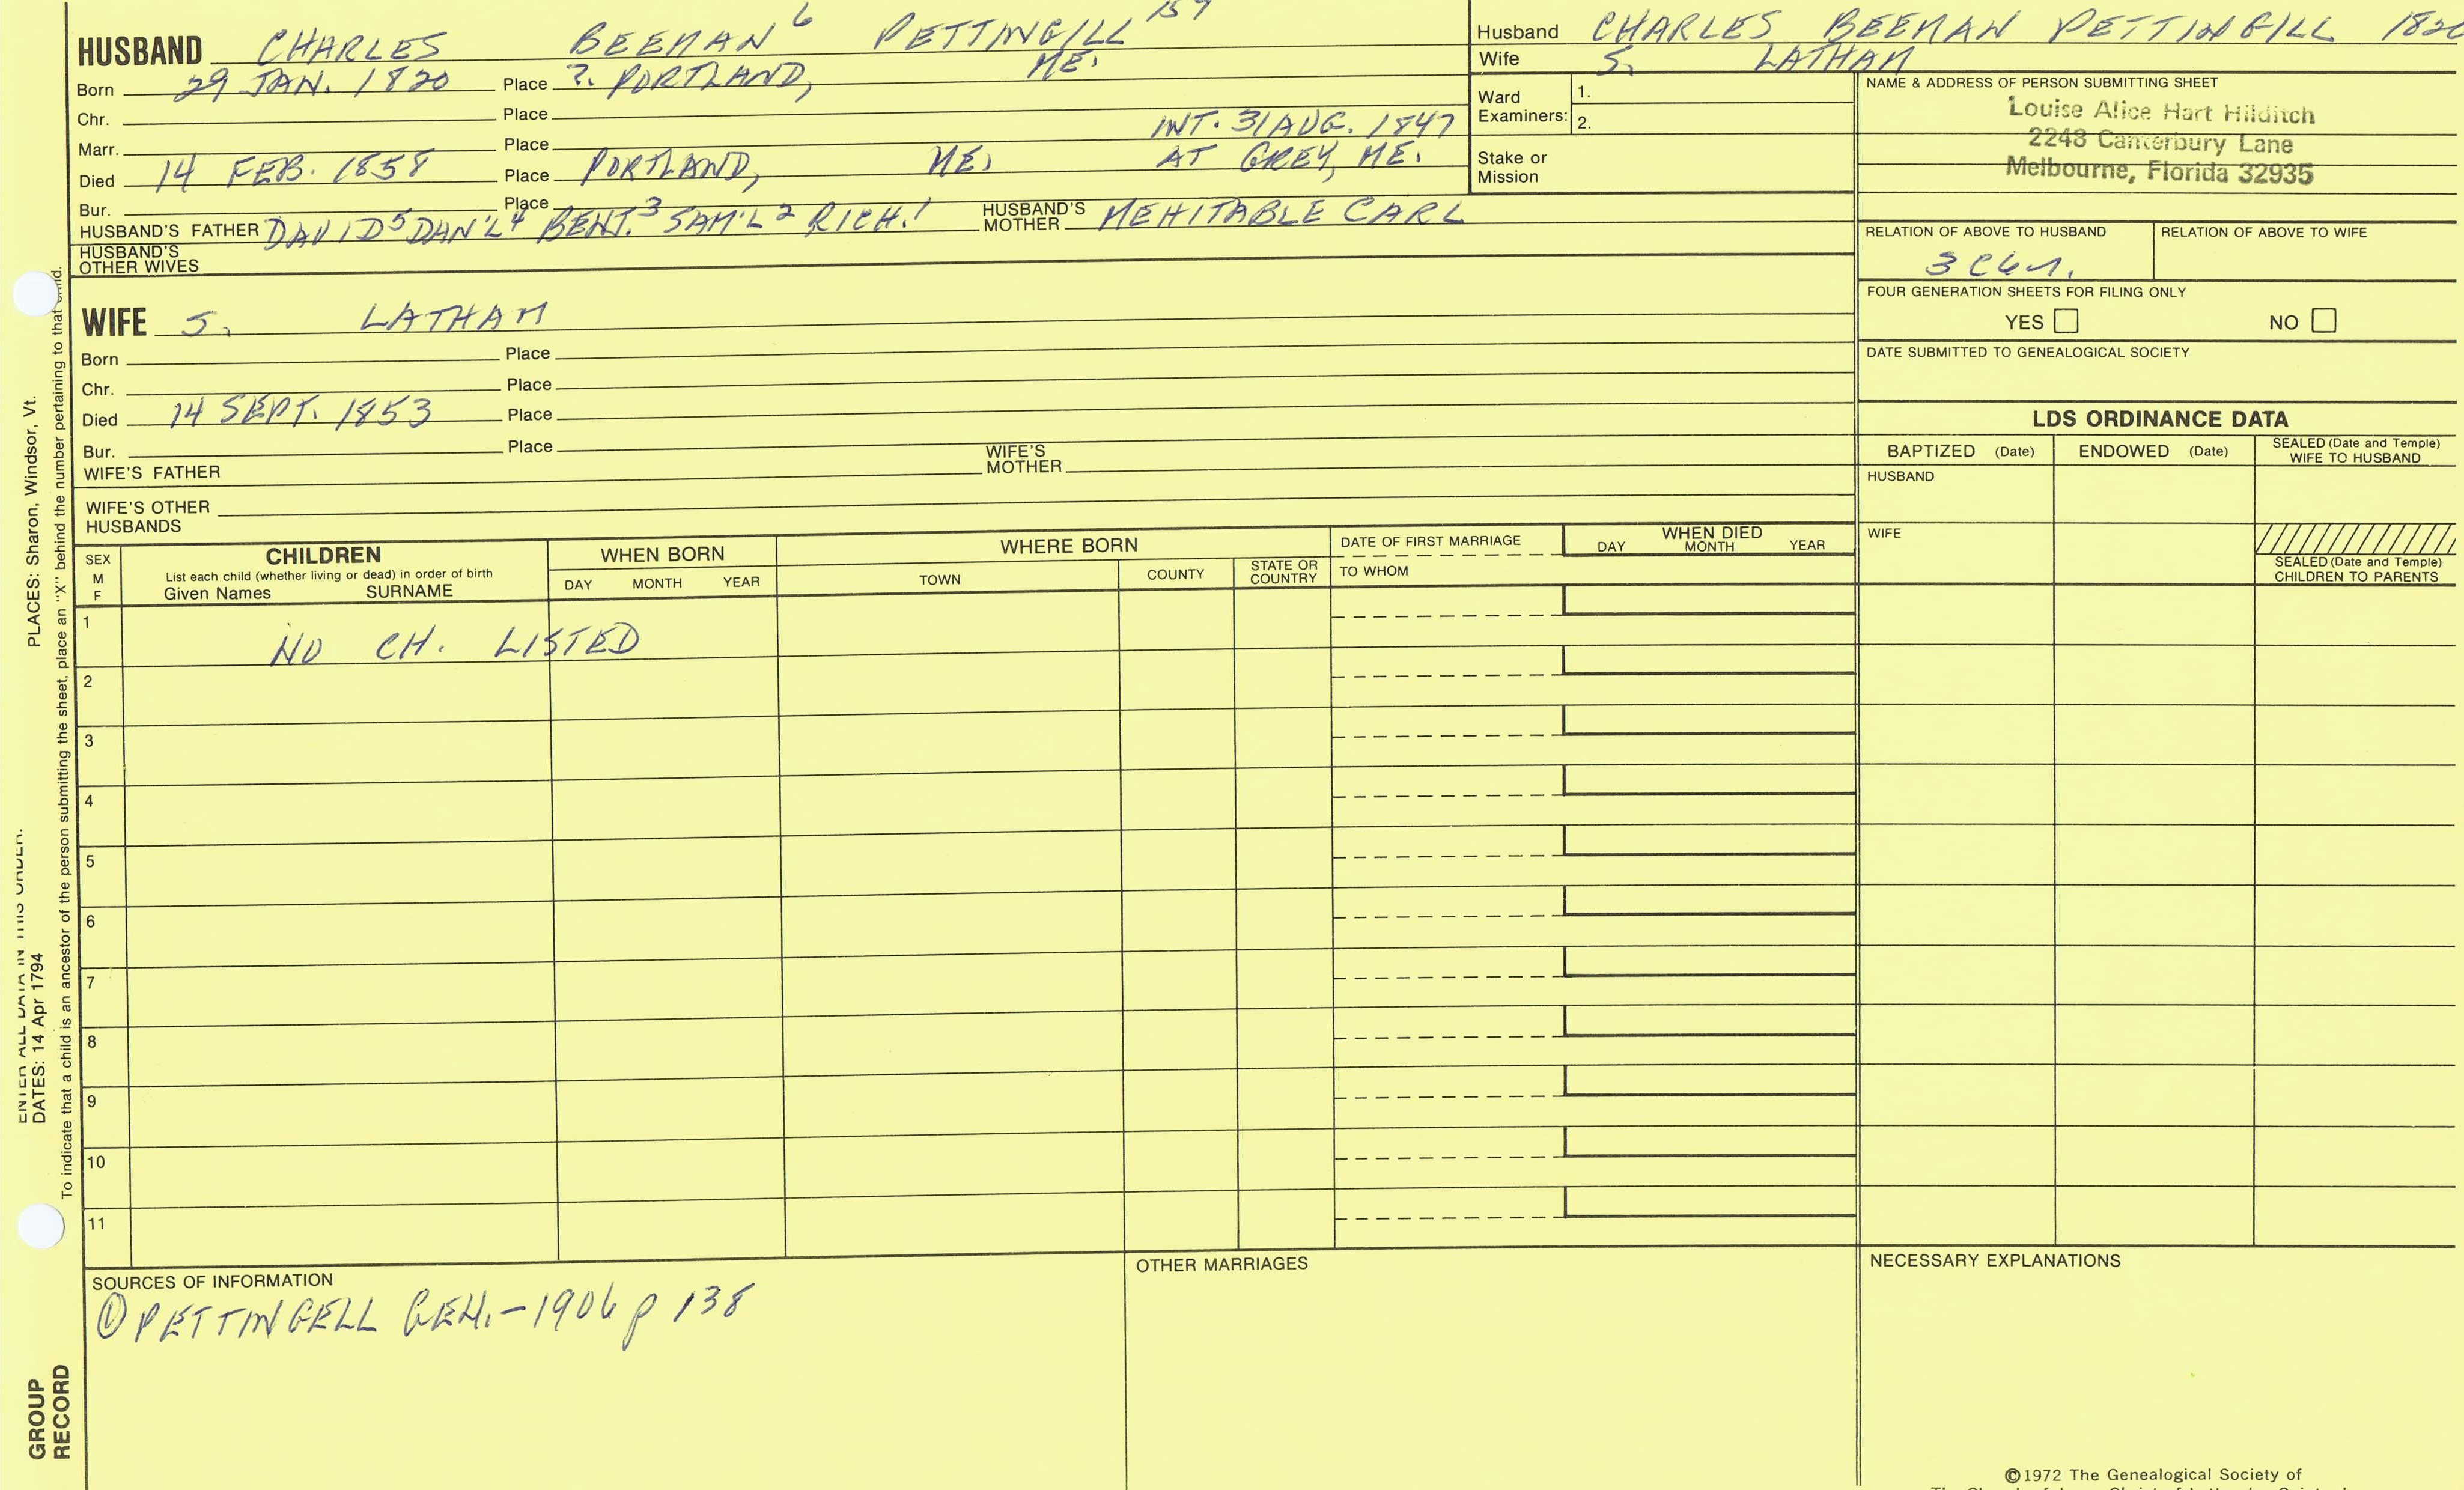 HUSBAND CHARLES BEEMAN 6 PETTINGILL 159
Born 29 JAN. 1820 Place ?. PORTLAND, ME.
Chr. Place
Marr. Place INT. 31 AUG. 1847
Died 14 FEB. 1858 Place PORTLAND, ME. AT GREY, ME.
Bur. Place
HUSBAND'S FATHER DAVID 5 DAN'L 4 BENJ. 3 SAM'L 2 RICH. 1 HUSBAND'S MOTHER MEHITABLE CARL
HUSBAND'S OTHER WIVES
WIFE S. LATHAM
Born Place
Chr. Place
Died 14 SEPT. 1853 Place
Bur. Place
WIFE'S FATHER WIFE'S MOTHER
WIFE'S OTHER HUSBANDS
Husband CHARLES BEEMAN PETTINGILL 1820
Wife S. LATHAM
Ward Examiners: 1.
2.
Stake or Mission
NAME & ADDRESS OF PERSON SUBMITTING SHEET
Louise Alice Hart Hilditch
2248 Canterbury Lane
Melbourne, Florida 32935
RELATION OF ABOVE TO HUSBAND RELATION OF ABOVE TO WIFE
FOUR GENERATION SHEETS FOR FILING ONLY
YES NO
DATE SUBMITTED TO GENEALOGICAL SOCIETY
LDS ORDINANCE DATA
BAPTIZED (Date) ENDOWED (Date) SEALED (Date and Temple) WIFE TO HUSBAND
HUSBAND
WIFE
SEALED (Date and Temple) CHILDREN TO PARENTS
SEX M F CHILDREN WHEN BORN WHERE BORN DATE OF FIRST MARRIAGE WHEN DIED
List each child (whether living or dead) in order of birth
Given Names SURNAME DAY MONTH YEAR TOWN COUNTY STATE OR COUNTRY TO WHOM DAY MONTH YEAR
1 NO CH. LISTED
2
3
4
5
6
7
8
9
10
11
SOURCES OF INFORMATION
① PETTINGELL GEN. - 1906 p 138
OTHER MARRIAGES
NECESSARY EXPLANATIONS
©1972 The Genealogical Society of
ENTER ALL DATA IN THIS ORDER:
DATES: 14 Apr 1794
PLACES: Sharon, Windsor, Vt.
To indicate that a child is an ancestor of the person submitting the sheet, place an "X" behind the number pertaining to that child.
GROUP
RECORD